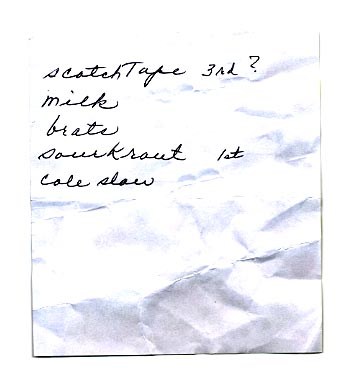 scotchTape 3rd?
milk
brats
sourKrout 1st
cole slaw